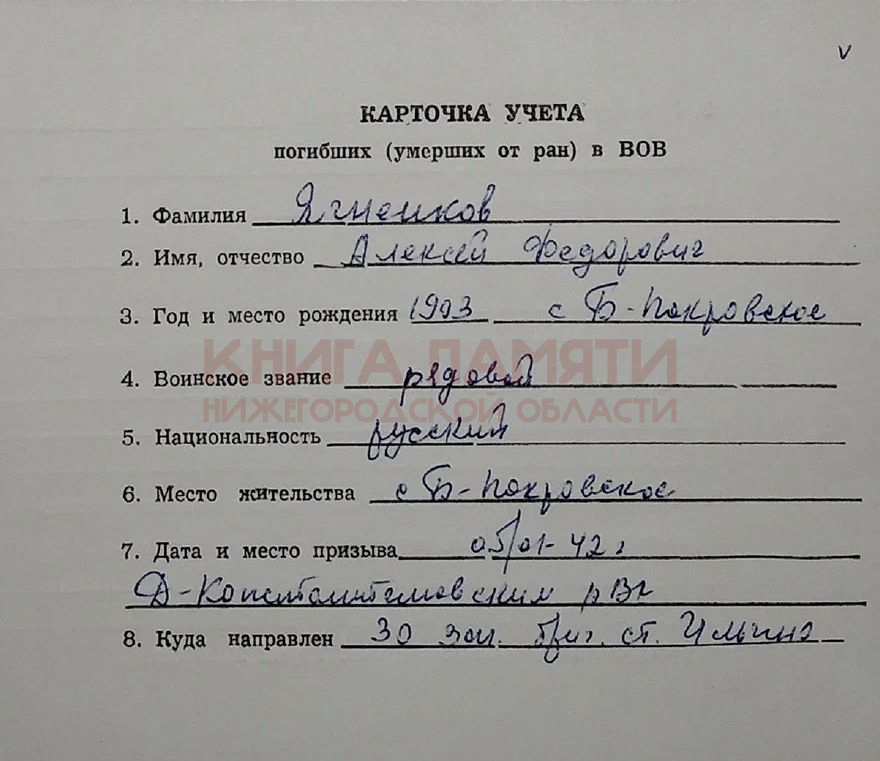 v
КАРТОЧКА УЧЕТА
погибших (умерших от ран) в ВОВ
1. Фамилия Ягненков
2. Имя, отчество Алексей Федорович
3. Год и место рождения 1903 с Б-Покровское
КНИГА ПАМЯТИ
4. Воинское звание рядовой
НИЖЕГОРОДСКОЙ ОБЛАСТИ
5. Национальность русский
6. Место жительства с Б-Покровское
7. Дата и место призыва 05/01-42 г
Д-Константиновским рВк
8. Куда направлен 30 зап. бриг. ст. Ильино